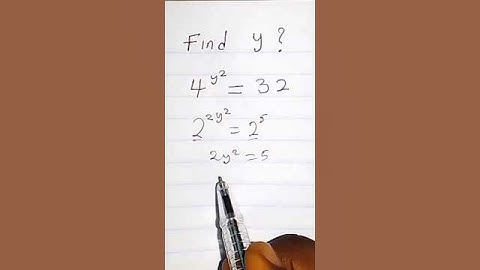 Find y?
4^y² = 32
2^2y² = 2^5
2y² = 5